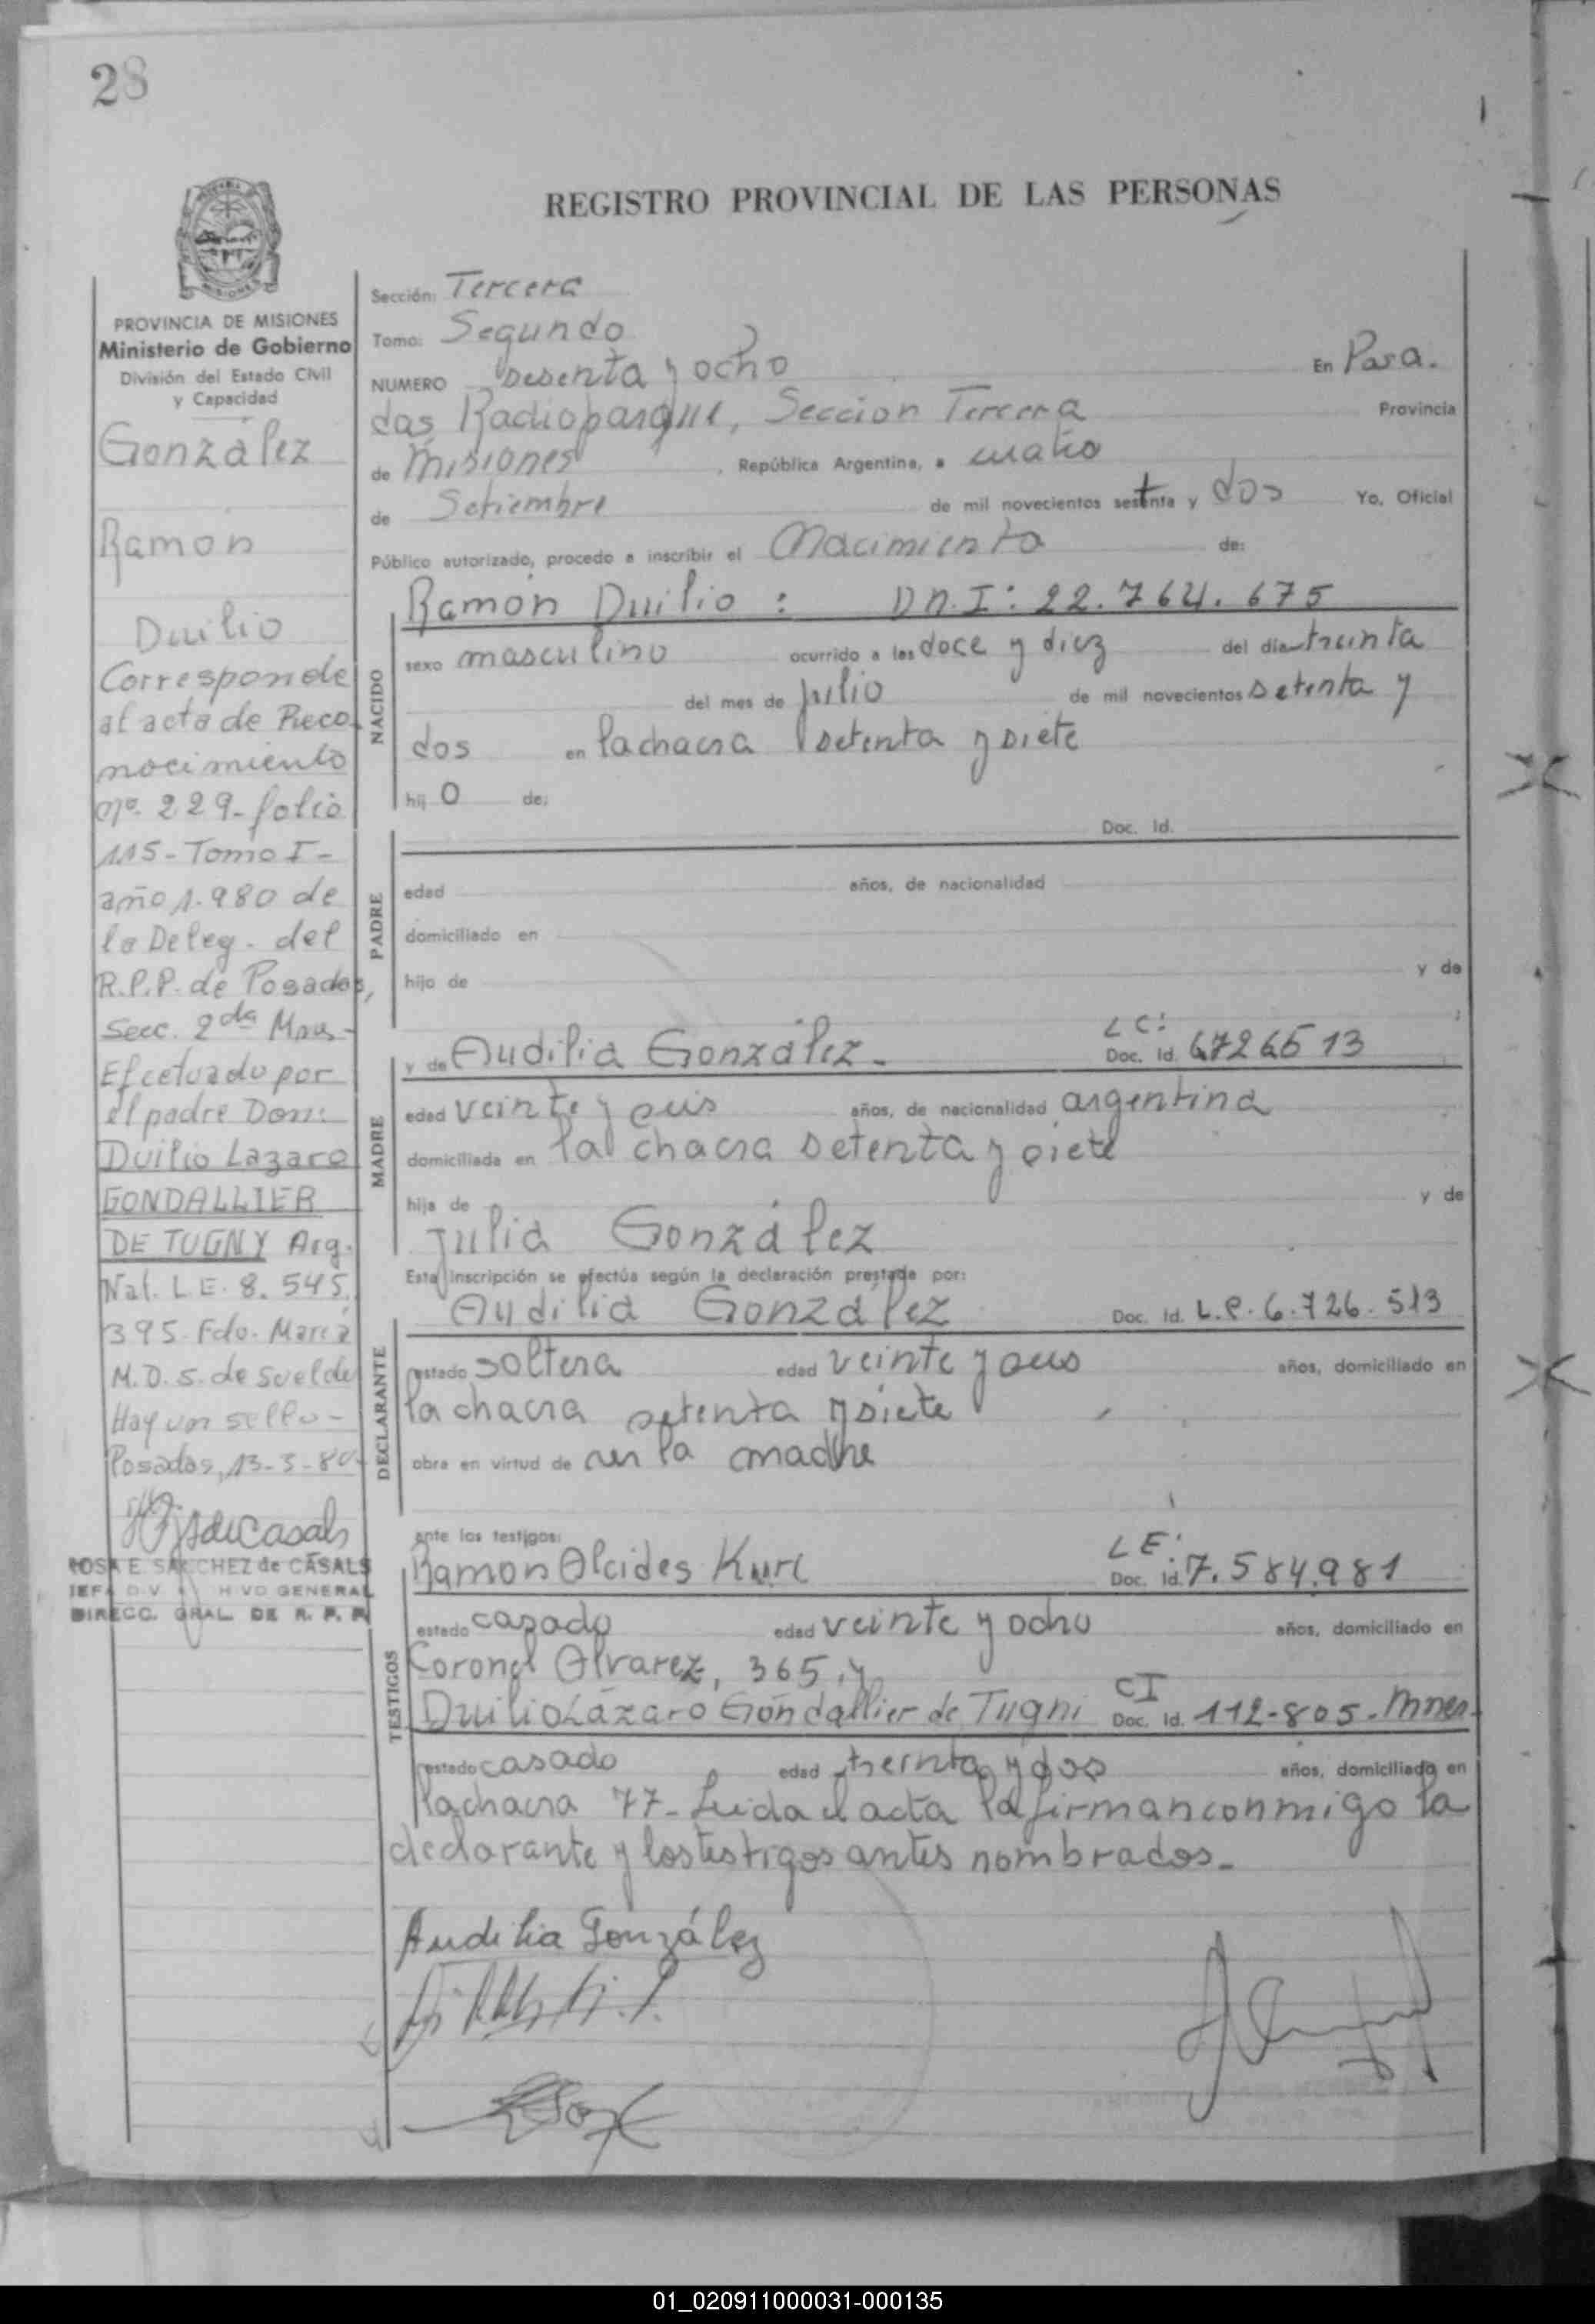 28
REGISTRO PROVINCIAL DE LAS PERSONAS
MISIONES
PROVINCIA DE MISIONES
Ministerio de Gobierno
División del Estado Civil
y Capacidad
González
Ramon
Duilio
Corresponde
al acta de Reco-
nocimiento
nº. 229- folio
115- Tomo I-
año 1.980 de
la Deleg. del
R.P.P. de Posadas,
Secc. 2da Mnes-
Efectuado por
el padre Don:
Duilio Lazaro
GONDALLIER
DE TUGNY Arg.
Nat. L.E. 8.545.
395. Fdo. Maria
M.D.S. de Suelde
Hay un sello-
Posadas, 13-3-80-
ROSA E. SANCHEZ de CASALS
DIRECC. GRAL. DE R. P. P.
Sección: Tercera
Tomo: Segundo
NUMERO sesenta y ocho En Posa.
das Radioparque, Seccion Tercera Provincia
de Misiones, República Argentina, a cuatro
de Setiembre de mil novecientos setenta y dos Yo, Oficial
Público autorizado, procedo a inscribir el Nacimiento de:
NACIDO
Ramón Duilio : D.N.I: 22.764.675
sexo masculino ocurrido a las doce y diez del dia treinta
del mes de julio de mil novecientos setenta y
dos en la chacra setenta y siete
hijo de:
PADRE
Doc. Id.
edad años, de nacionalidad
domiciliado en
hijo de y de
MADRE
y de Audilia González- LC: Doc. Id. 6726513
edad veinte y seis años, de nacionalidad argentina
domiciliada en la chacra setenta y siete
hija de y de
Julia González
Esta inscripción se efectúa según la declaración prestada por:
DECLARANTE
Audilia González Doc. Id. L.C. 6.726.513
estado soltera edad veinte y seis años, domiciliado en
la chacra setenta y siete
obra en virtud de ser la madre
ante los testigos:
TESTIGOS
Ramon Alcides Kurl LE: Doc. Id. 7.584.981
estado casado edad veinte y ocho años, domiciliado en
Coronel Alvarez, 365, y
Duilio Lázaro Gondallier de Tugni CI Doc. Id. 112-805-Mnes.
estado casado edad treinta y dos años, domiciliado en
la chacra 77- Leida el acta la firman conmigo la
declarante y los testigos antes nombrados-
Audilia González
01_020911000031-000135